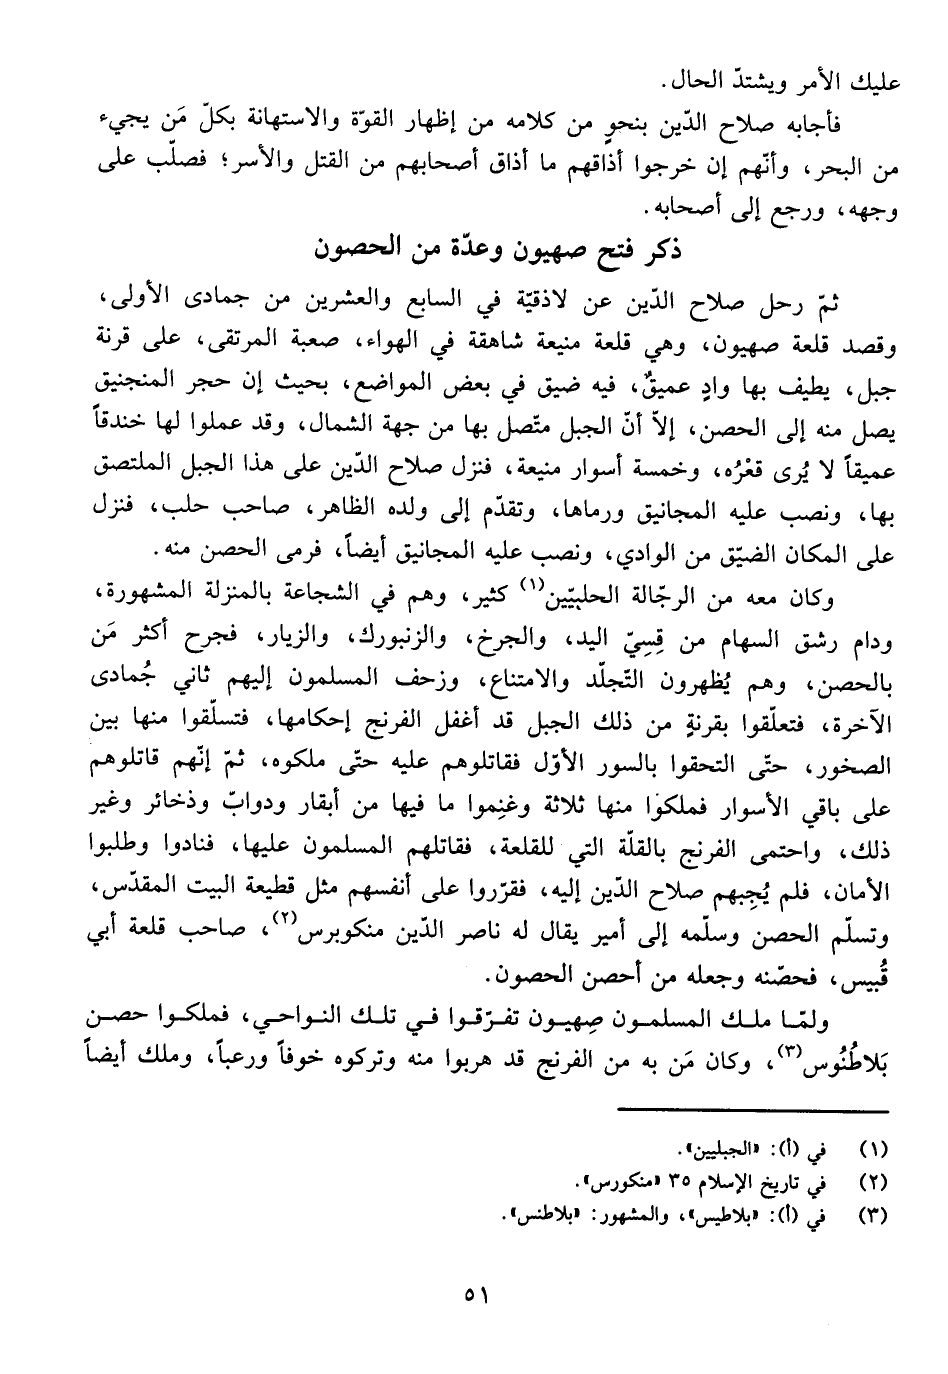 عليك الأمر ويشتدّ الحال.
فأجابه صلاح الدّين بنحوٍ من كلامه من إظهار القوّة والاستهانة بكلّ مَن يجيء
من البحر، وأنّهم إن خرجوا أذاقهم ما أذاق أصحابهم من القتل والأسر؛ فصلّب على
وجهه، ورجع إلى أصحابه.
ذكر فتح صهيون وعدّة من الحصون
ثمّ رحل صلاح الدّين عن لاذقيّة في السابع والعشرين من جمادى الأولى،
وقصد قلعة صهيون، وهي قلعة منيعة شاهقة في الهواء، صعبة المرتقى، على قرنة
جبل، يطيف بها وادٍ عميقٌ، فيه ضيق في بعض المواضع، بحيث إن حجر المنجنيق
يصل منه إلى الحصن، إلاّ أنّ الجبل متّصل بها من جهة الشمال، وقد عملوا لها خندقاً
عميقاً لا يُرى قعْرُه، وخمسة أسوار منيعة، فنزل صلاح الدّين على هذا الجبل الملتصق
بها، ونصب عليه المجانيق ورماها، وتقدّم إلى ولده الظاهر، صاحب حلب، فنزل
على المكان الضيّق من الوادي، ونصب عليه المجانيق أيضاً، فرمى الحصن منه.
وكان معه من الرجّالة الحلبيّين(١) كثير، وهم في الشجاعة بالمنزلة المشهورة،
ودام رشق السهام من قِسِيّ اليد، والجرخ، والزنبورك، والزيار، فجرح أكثر مَن
بالحصن، وهم يُظهرون التّجلّد والامتناع، وزحف المسلمون إليهم ثاني جُمادى
الآخرة، فتعلّقوا بقرنةٍ من ذلك الجبل قد أغفل الفرنج إحكامها، فتسلّقوا منها بين
الصخور، حتّى التحقوا بالسور الأوّل فقاتلوهم عليه حتّى ملكوه، ثمّ إنّهم قاتلوهم
على باقي الأسوار فملكوا منها ثلاثة وغنِموا ما فيها من أبقار ودوابّ وذخائر وغير
ذلك، واحتمى الفرنج بالقلّة التي للقلعة، فقاتلهم المسلمون عليها، فنادوا وطلبوا
الأمان، فلم يُجِبهم صلاح الدّين إليه، فقرّروا على أنفسهم مثل قطيعة البيت المقدّس،
وتسلّم الحصن وسلّمه إلى أمير يقال له ناصر الدّين منكوبرس(٢)، صاحب قلعة أبي
قُبيس، فحصّنه وجعله من أحصن الحصون.
ولمّا ملك المسلمون صِهيون تفرّقوا في تلك النواحي، فملكوا حصن
بَلاطُنُوس(٣)، وكان مَن به من الفرنج قد هربوا منه وتركوه خوفاً ورعباً، وملك أيضاً
(١) في (أ): «الجبليين».
(٢) في تاريخ الإسلام ٣٥ «منكورس».
(٣) في (أ): «بلاطيس»، والمشهور: «بلاطنس».
٥١